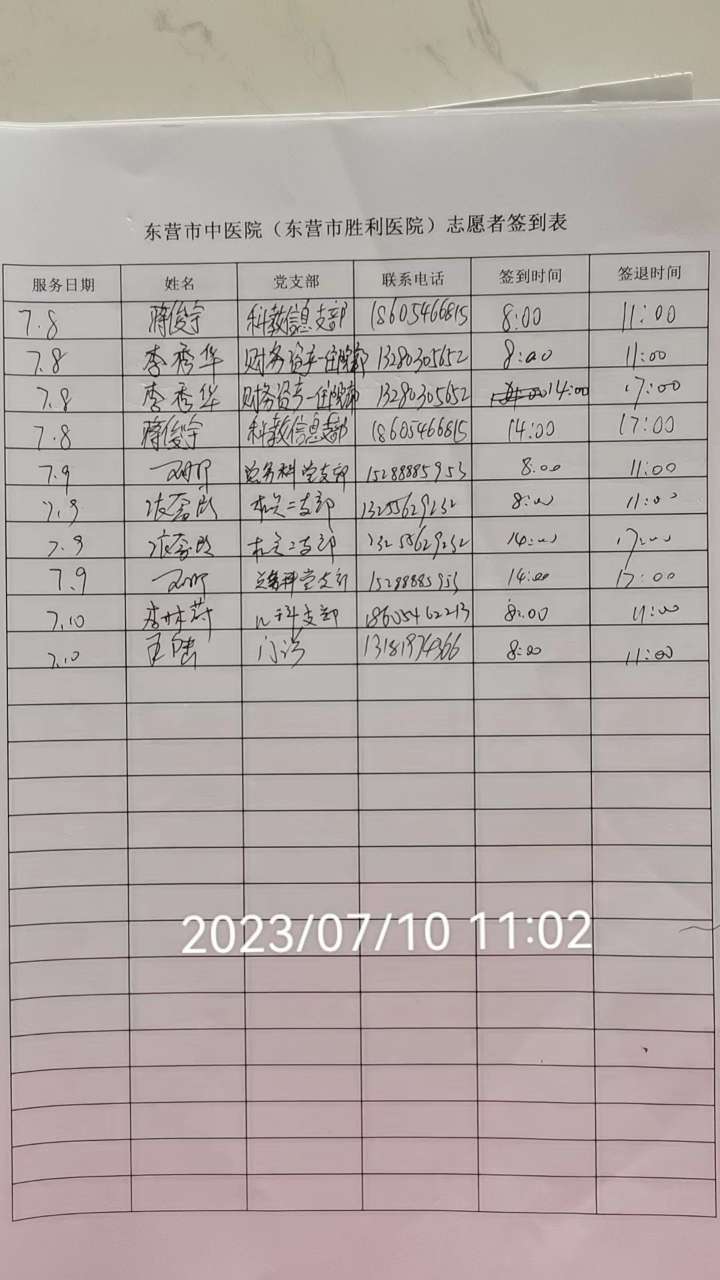 东营市中医院（东营市胜利医院）志愿者签到表
服务日期 姓名 党支部 联系电话 签到时间 签退时间
7.8 蒋俊宇 科教信息支部 18605466815 8:00 11:00
7.8 李秀华 财务资产一住院部 13280305652 8:00 11:00
7.8 李秀华 财务资产一住院部 13280305652 14:00 17:00
7.8 蒋俊宇 科教信息支部 18605466815 14:00 17:00
7.9 总务科党支部 15288885953 8:00 11:00
7.9 机关二支部 13255629232 8:00 11:00
7.9 机关二支部 13255629232 14:00 17:00
7.9 总务科党支部 15288885953 14:00 17:00
7.10 支部 18605462213 8:00 11:00
7.10 王陆 门诊 13181974366 8:00 11:00
2023/07/10 11:02